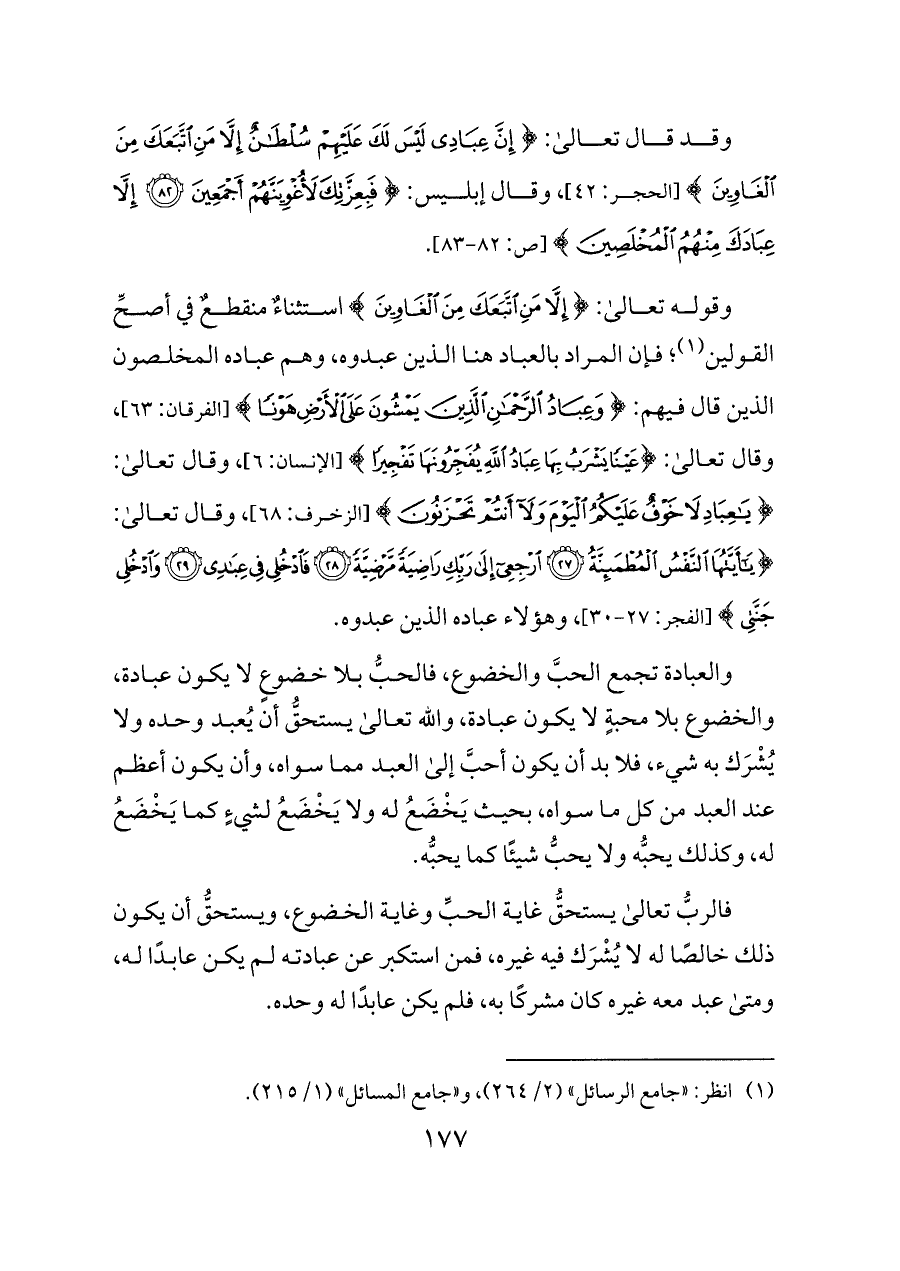 وقد قال تعالىٰ: ﴿ إِنَّ عِبَادِى لَيْسَ لَكَ عَلَيْهِمْ سُلْطَٰنٌ إِلَّا مَنِ ٱتَّبَعَكَ مِنَ
ٱلْغَاوِينَ ﴾ [الحجر: ٤٢]، وقال إبليس: ﴿ فَبِعِزَّتِكَ لَأُغْوِيَنَّهُمْ أَجْمَعِينَ ٨٢ إِلَّا
عِبَادَكَ مِنْهُمُ ٱلْمُخْلَصِينَ ﴾ [ص: ٨٢-٨٣].
وقوله تعالىٰ: ﴿ إِلَّا مَنِ ٱتَّبَعَكَ مِنَ ٱلْغَاوِينَ ﴾ استثناءٌ منقطعٌ في أصحِّ
القولين(١)؛ فإن المراد بالعباد هنا الذين عبدوه، وهم عباده المخلصون
الذين قال فيهم: ﴿ وَعِبَادُ ٱلرَّحْمَٰنِ ٱلَّذِينَ يَمْشُونَ عَلَى ٱلْأَرْضِ هَوْنًا ﴾ [الفرقان: ٦٣]،
وقال تعالىٰ: ﴿ عَيْنًا يَشْرَبُ بِهَا عِبَادُ ٱللَّهِ يُفَجِّرُونَهَا تَفْجِيرًا ﴾ [الإنسان: ٦]، وقال تعالىٰ:
﴿ يَٰعِبَادِ لَا خَوْفٌ عَلَيْكُمُ ٱلْيَوْمَ وَلَآ أَنتُمْ تَحْزَنُونَ ﴾ [الزخرف: ٦٨]، وقال تعالىٰ:
﴿ يَٰٓأَيَّتُهَا ٱلنَّفْسُ ٱلْمُطْمَئِنَّةُ ٢٧ ٱرْجِعِىٓ إِلَىٰ رَبِّكِ رَاضِيَةً مَّرْضِيَّةً ٢٨ فَٱدْخُلِى فِى عِبَٰدِى ٢٩ وَٱدْخُلِى
جَنَّتِى ﴾ [الفجر: ٢٧-٣٠]، وهؤلاء عباده الذين عبدوه.
والعبادة تجمع الحبَّ والخضوع، فالحبُّ بلا خضوعٍ لا يكون عبادة،
والخضوع بلا محبةٍ لا يكون عبادة، والله تعالىٰ يستحقُّ أن يُعبد وحده ولا
يُشْرَك به شيء، فلا بد أن يكون أحبَّ إلىٰ العبد مما سواه، وأن يكون أعظم
عند العبد من كل ما سواه، بحيث يَخْضَعُ له ولا يَخْضَعُ لشيءٍ كما يَخْضَعُ
له، وكذلك يحبُّه ولا يحبُّ شيئًا كما يحبُّه.
فالربُّ تعالىٰ يستحقُّ غاية الحبِّ وغاية الخضوع، ويستحقُّ أن يكون
ذلك خالصًا له لا يُشْرَك فيه غيره، فمن استكبر عن عبادته لم يكن عابدًا له،
ومتىٰ عبد معه غيره كان مشركًا به، فلم يكن عابدًا له وحده.
(١) انظر: «جامع الرسائل» (٢/ ٢٦٤)، و«جامع المسائل» (١/ ٢١٥).
١٧٧